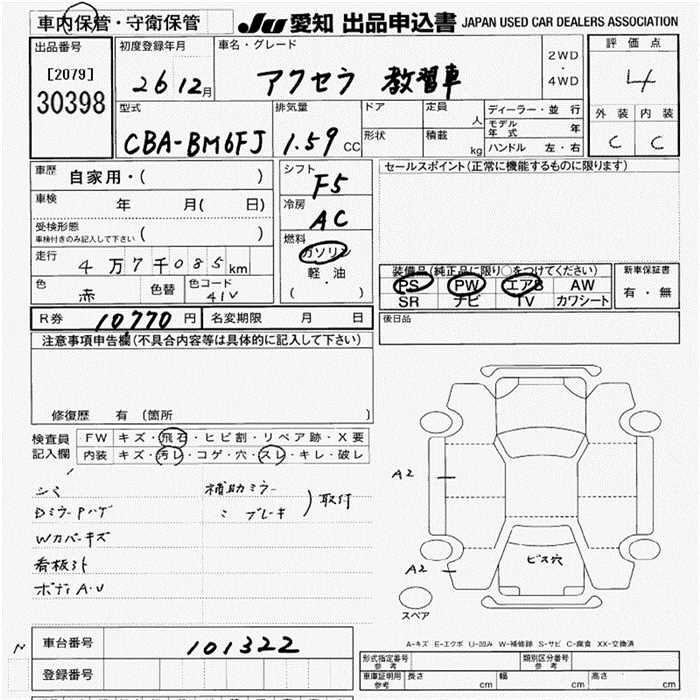 車内保管・守衛保管
JU 愛知 出品申込書 JAPAN USED CAR DEALERS ASSOCIATION
出品番号
[2079]
30398
初度登録年月
26 12月
車名・グレード
アクセラ 教習車
2WD
・
4WD
評価点
4
外装 内装
C C
型式
CBA-BM6FJ
排気量
1.59 CC
ドア
形状
定員 人
積載 kg
ディーラー・並行
モデル年式 年
ハンドル 左・右
車歴 自家用・( )
車検 年 月( 日)
受検形態
車検付きのみ記入して下さい ( )
走行 4万7千085km
色 赤 色替 色コード 41V
シフト
F5
冷房
AC
燃料
ガソリン
軽・油
( )
セールスポイント(正常に機能するものに限ります)
装備品(純正品に限り○をつけてください)
PS PW エアB AW
SR ナビ TV カワシート
新車保証書
有・無
後日品
R券 10770円 名変期限 月 日
注意事項申告欄(不具合内容等は具体的に記入して下さい)
修復歴 有 (箇所 )
検査員
記入欄
FW キズ・飛石・ヒビ割・リペア跡・X要
内装 キズ・汚レ・コゲ・穴・スレ・キレ・破レ
シミ
DミラーPハゲ
Wカバーキズ
看板外
ボディA・U
補助ミラー
〃 ブレーキ
取付
A2
A2
ビス穴
スペア
A-キズ E-エクボ U-凹み W-補修跡 S-サビ C-腐食 XX-交換済
車台番号 101322
登録番号
形式指定番号 参考
類別区分番号 参考
車庫証明用 参考 長さ cm 幅 cm 高さ cm